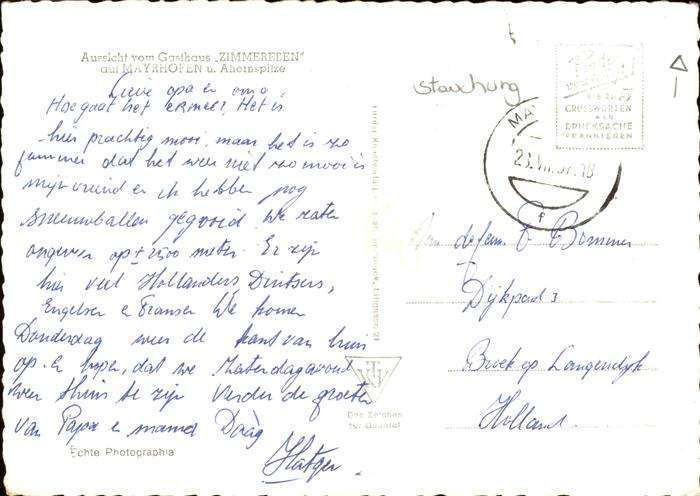 Aussicht vom Gasthaus „ZIMMEREBEN"
auf MAYRHOFEN u. Ahornspitze
Lieve opa en oma
Hoe gaat het ermee? Het is
hier prachtig mooi, maar het is zo
jammer dat het weer niet zo mooi is
mijn vriend en ik hebben nog
sneeuwballen gegooid. We zaten
ongeveer op ± 2500 meter. Er zijn
hier veel Hollanders, Duitsers,
Engelsen en Fransen We komen
Donderdag weer de kant van huis
op. En hopen, dat we Zaterdagavond
weer thuis te zijn Verder de groeten
van Papa en mama Daàg
Echte Photographia
Das Zeichen
für Qualität
CRUSSWORTEN
ALS
DRUCKSACHE
FRANKIEREN
MAY
23.VII.57.18
f
Aan de fam. P Bommer
Dijkpad 3
Broek op Langendijk
Holland.